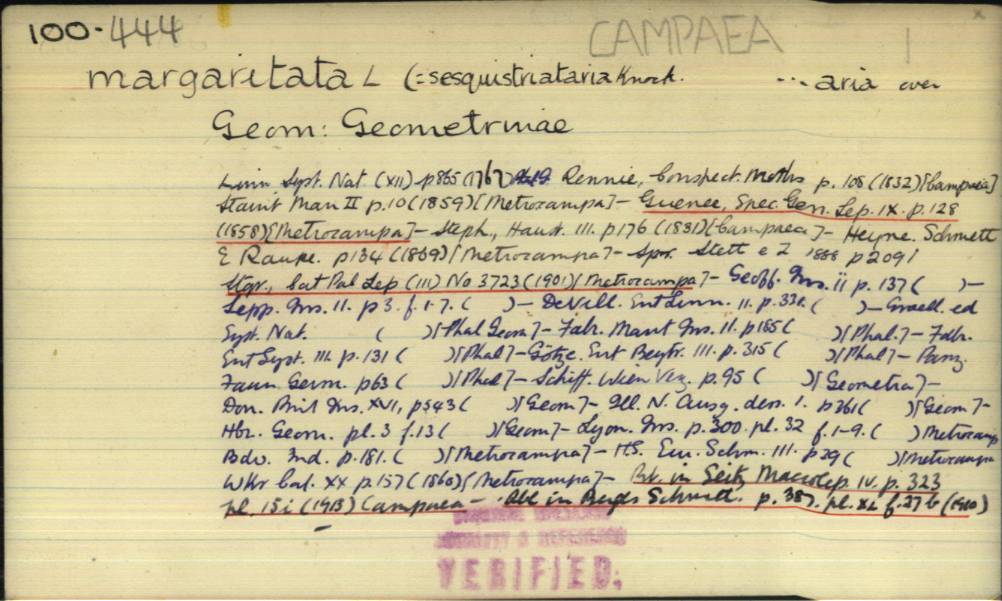 100-444
CAMPAEA
margaritata L (= sesquistriataria Knoch. ... aria over
Geom: Geometrinae
Linn. Syst. Nat (XII) p865 (1767) Rennie, Conspect. Moths p. 108 (1832) [Campaea]
Staint Man II p.10 (1859) [Metrocampa] - Guenee, Spec. Gen. Lep. IX. p.128
(1858) [Metrocampa] - Steph, Haust. III. p176 (1831) [Campaea] - Heyne. Schmett
E Raupe. p134 ( [Metrocampa] - Stett e Z 1888 p209/
Stgr, Cat Pal Lep (III) No 3723 (1901) [Metrocampa] - Geoff. Ins. ii p. 137 ( ) -
Sepp. Ins. II. p3. f.1-7. ( ) - DeVill. Ent Linn. II. p.331. ( ) - Gmell. ed
Syst. Nat. ( ) [Phal Geom] - Fabr. Mant Ins. II. p185 ( ) [Phal.] - Fabr.
Ent Syst. III. p.131 ( ) [Phal] - Götze. Ent Beytr. III. p.315 ( ) [Phal] - Panz
Faun. Germ. p63 ( ) [Phal] - Schiff. Wien Verz. p.95 ( ) [Geometra] -
Don. Brit Ins. XVI, p543 ( ) [Geom] - Ill. N. Ausg. dess. 1. p361 ( ) [Geom] -
Hbr. Geom. pl. 3 f.13 ( ) [Geom] - Lyon. Ins. p.300. pl. 32 f.1-9. ( ) Metrocamp
Bdv. Ind. p.181. ( ) [Metrocampa] - HS. Eur. Schm. III. p29 ( ) [Metrocampa
Wkr Cat. XX p.157 (1860) [Metrocampa] - Prt. in Seitz Macrolep. IV. p. 323
pl. 15i (1913) Campaea - Rbl in Bergs Schmett. p. 387. pl. XL f.27b (1910)
VERIFIED: